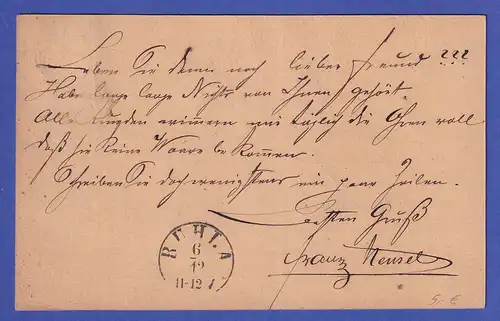 Leben Sie denn noch lieber Freund ???
Habe lange lange Nichts von Ihnen gehört
Alle Kunden mir täglich die Ohren voll
daß sie keine Waare bekommen.
Schreiben Sie doch wenigstens ein paar Zeilen.
Besten Gruß
Franz Hensel
RUHLA
6
12
11-12
5,-€